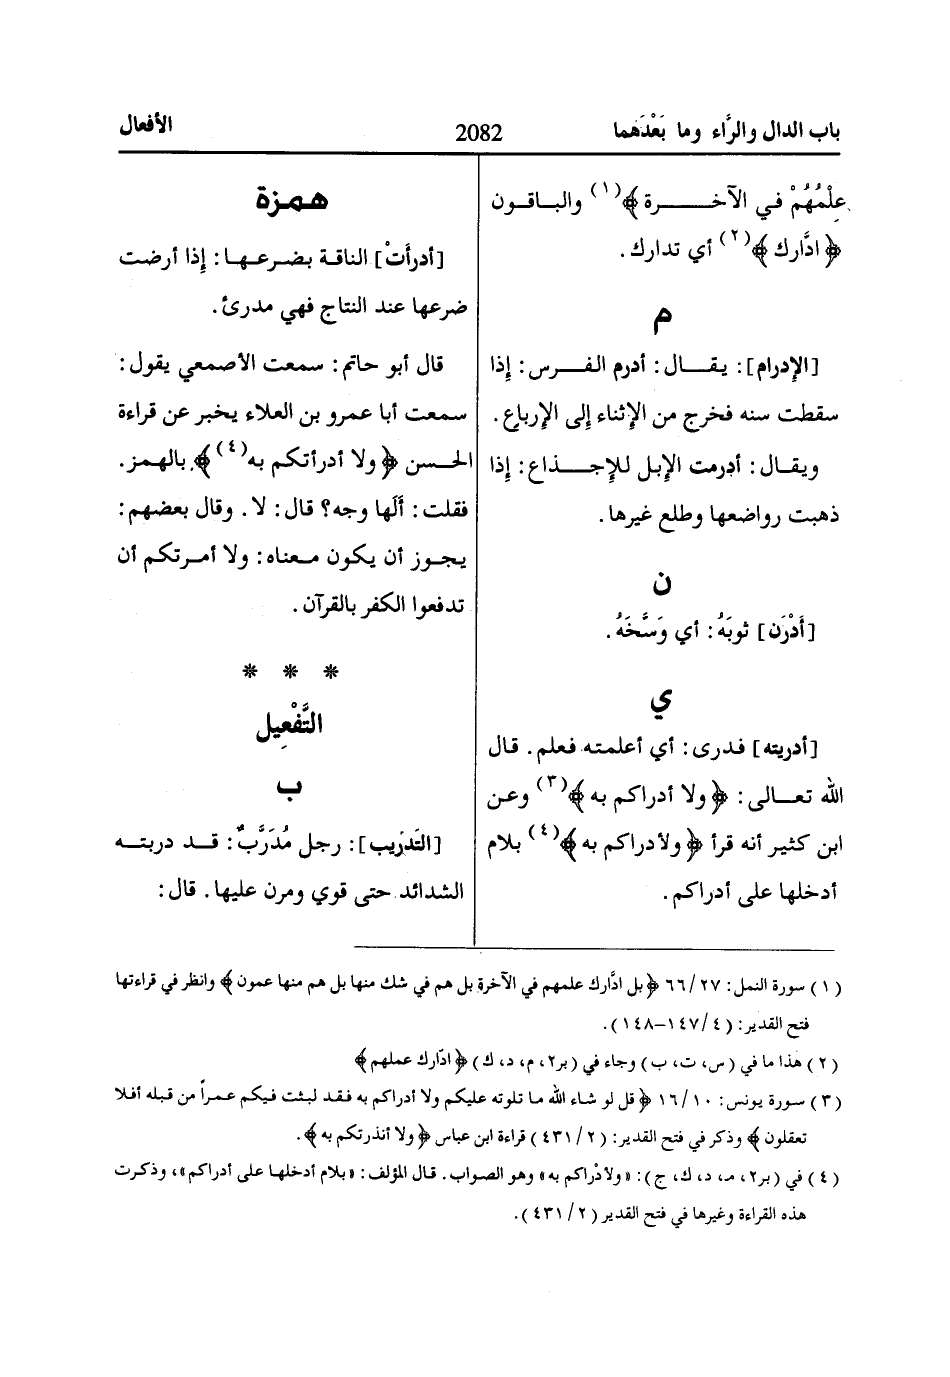 باب الدال والرَّاء وما بَعْدَهما 2082 الأفعال
عِلْمُهُمْ في الآخـــــرة ﴾(١) والبـاقـون
﴿ ادَّارك ﴾(٢) أي تدارك.
م
[الإدرام]: يقـــال: أدرم الفـــرس: إذا
سقطت سنه فخرج من الإثناء إلى الإرباع.
ويقـال: أدرمت الإبل للإجـــذاع: إذا
ذهبت رواضعها وطلع غيرها.
ن
[أَدْرَن] ثوبَهُ: أي وَسَّخَهُ.
ي
[أدريته] فدرى: أي أعلمته فعلم. قال
الله تعـــالى: ﴿ ولا أدراكم به ﴾(٣) وعن
ابن كثير أنه قرأ ﴿ ولأدراكم به ﴾(٤) بلام
أدخلها على أدراكم.
همزة
[أدرأتْ] الناقة بضرعـهـا: إذا أرضت
ضرعها عند النتاج فهي مدرئ.
قال أبو حاتم: سمعت الأصمعي يقول:
سمعت أبا عمرو بن العلاء يخبر عن قراءة
الحسن ﴿ ولا أدرأتكم به(٤) ﴾. بالهمز.
فقلت: أَلَها وجه؟ قال: لا. وقال بعضهم:
يجـوز أن يكون مـعناه: ولا أمـرتكم أن
تدفعوا الكفر بالقرآن.
* * *
التَّفْعِيل
ب
[التَدْرِيب]: رجل مُدَرَّبٌ: قـد دربتـه
الشدائد حتى قوي ومرن عليها. قال:
(١) سورة النمل: ٢٧/ ٦٦ ﴿ بل ادَّارك علمهم في الآخرة بل هم في شك منها بل هم منها عمون ﴾ وانظر في قراءتها
فتح القدير: (٤/ ١٤٧–١٤٨).
(٢) هذا ما في (س، ت، ب) وجاء في (بر٢، م، د، ك) ﴿ ادّارك عملهم ﴾
(٣) سورة يونس: ١٠/ ١٦ ﴿ قل لو شاء الله ما تلوته عليكم ولا أدراكم به فقد لبثت فيكم عمراً من قبله أفلا
تعقلون ﴾ وذكر في فتح القدير: (٢/ ٤٣١) قراءة ابن عباس ﴿ ولا أنذرتكم به ﴾.
(٤) في (بر٢، م، د، ك، ج): «ولأدْراكم به» وهو الصواب. قال المؤلف: «بلام أدخلها على أدراكم»، وذكرت
هذه القراءة وغيرها في فتح القدير (٢/ ٤٣١).